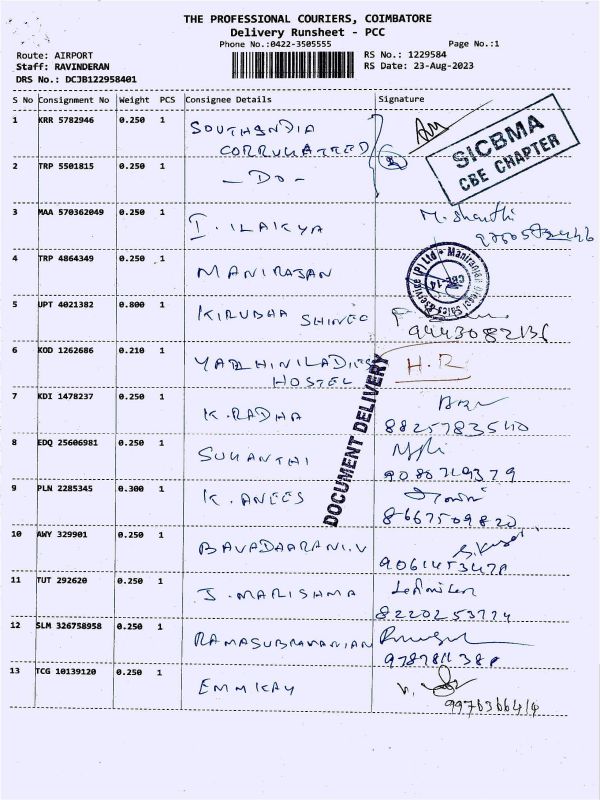 THE PROFESSIONAL COURIERS, COIMBATORE
Delivery Runsheet - PCC
Phone No.:0422-3505555
Page No.:1
Route: AIRPORT
RS No.: 1229584
Staff: RAVINDERAN
RS Date: 23-Aug-2023
DRS No.: DCJB122958401
S No Consignment No Weight PCS Consignee Details Signature
1 KRR 5782946 0.250 1 SOUTHINDIA
CORRUGATTED
SICBMA
CBE CHAPTER
2 TRP 5501815 0.250 1 - DO -
3 MAA 570362049 0.250 1 I. ILAKYA M. Shanthi
4 TRP 4864349 0.250 1 MANIRAJAN
5 UPT 4021382 0.800 1 KIRUBHA SHINEE
9443082136
6 KOD 1262686 0.210 1 YAZHINI LADIES H.R
HOSTEL
DOCUMENT DELIVERY
7 KDI 1478237 0.250 1 K. RADHA
8825783540
8 EDQ 25606981 0.250 1 SUKANTHI
9080719379
9 PLN 2285345 0.300 1 K. ANEES
8667509820
10 AWY 329901 0.250 1 BAVADAARANI.V
11 TUT 292620 0.250 1 J. MARISHMA
12 SLM 326758958 0.250 1 RAMASUBRAMANIAN
13 TCG 10139120 0.250 1 EMMKAY